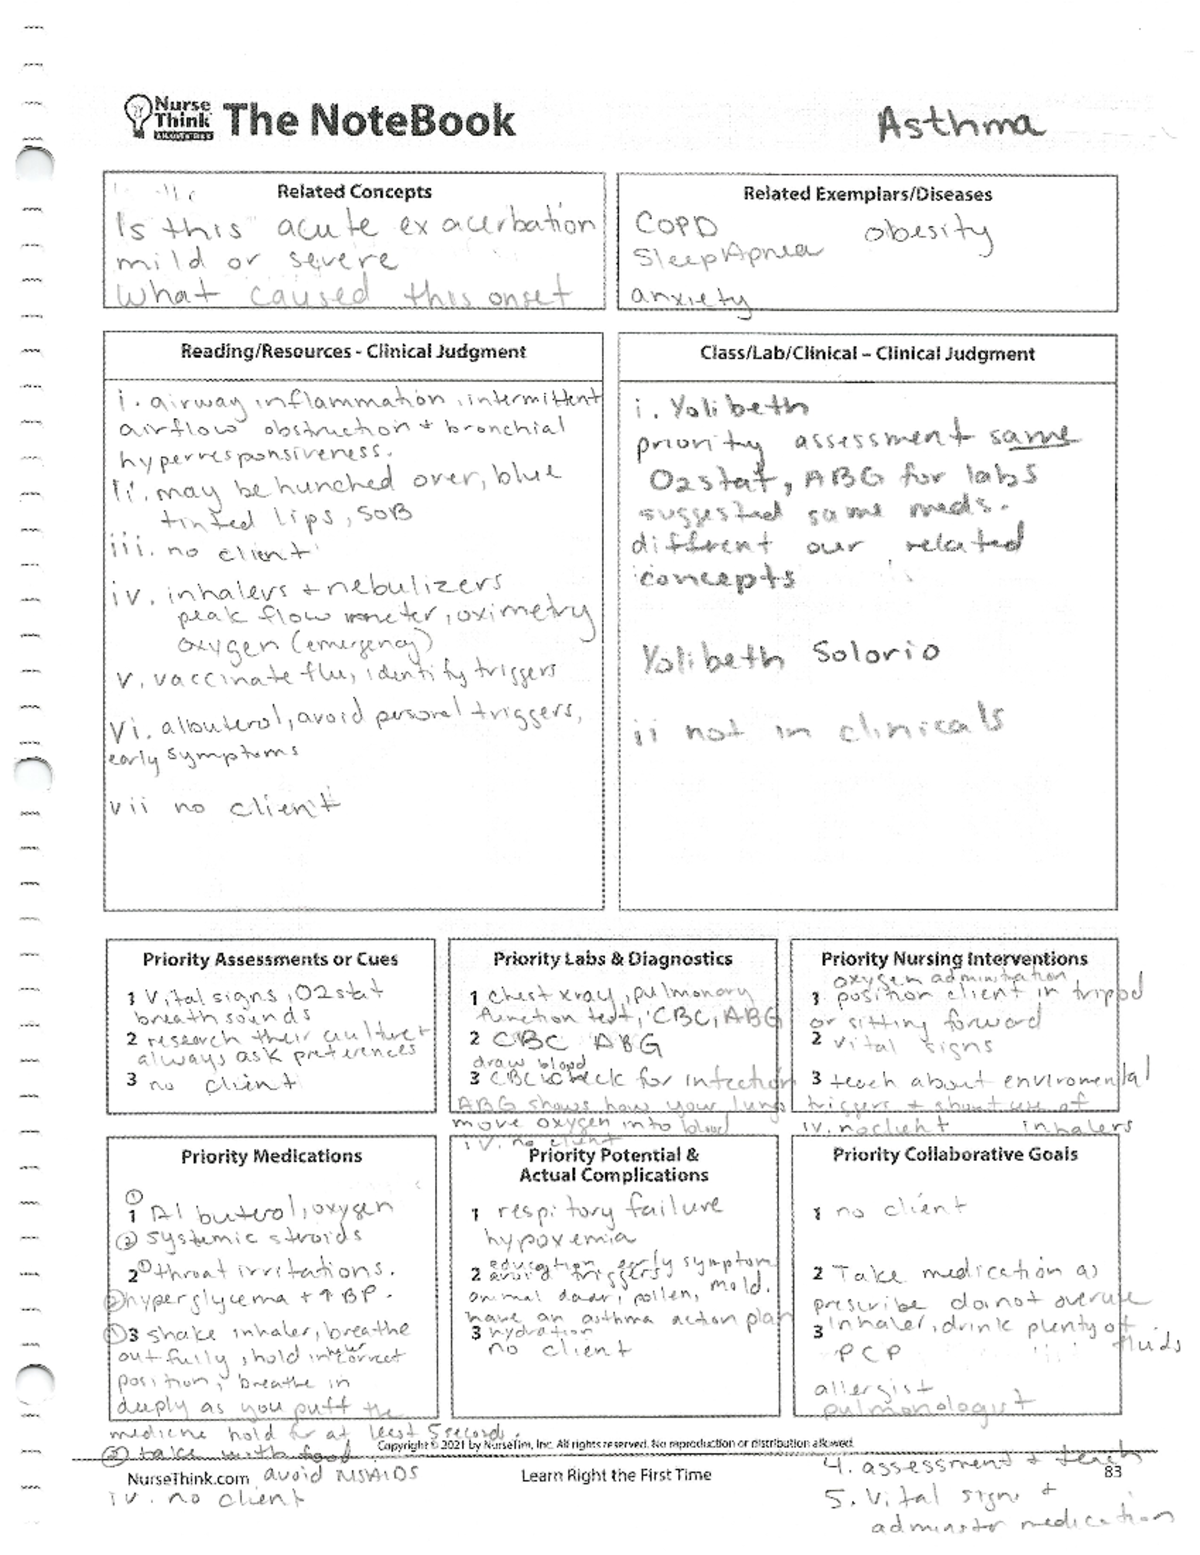 Nurse
Think
The NoteBook
Asthma
Related Concepts
Is this acute exacerbation
mild or severe
What caused this onset
Related Exemplars/Diseases
COPD obesity
Sleep Apnea
anxiety
Reading/Resources - Clinical Judgment
i. airway inflammation, intermittent
airflow obstruction + bronchial
hyperresponsiveness.
ii. may be hunched over, blue
tinted lips, SOB
iii. no client
iv. inhalers + nebulizers
peak flow meter, oximetry
oxygen (emergency)
v. vaccinate flu, identify triggers
vi. albuterol, avoid personal triggers,
early symptoms
vii no client
Class/Lab/Clinical – Clinical Judgment
i. Yolibeth
priority assessment same
O2stat, ABG for labs
suggested same meds.
different our related
concepts
Yolibeth Solorio
ii not in clinicals
Priority Assessments or Cues
1 Vital signs, O2stat
breath sounds
2 research their culture +
always ask preferences
3 no client
Priority Labs & Diagnostics
1 chest xray, pulmonary
function test, CBC, ABG
2 CBC ABG
draw blood
3 CBC check for infection
ABG shows how your lungs
move oxygen into blood
iv. no client
Priority Nursing Interventions
oxygen adminitration
1 position client in tripod
or sitting forward
2 vital signs
3 teach about enviromental
triggers + use of
iv. no client inhalers
Priority Medications
① 1 Albuterol, oxygen
② systemic stroids
2 ① throat irritations.
② hyperglycema + ↑ BP.
① 3 shake inhaler, breathe
out fully, hold in correct
position, breathe in
deeply as you puff the
medicine hold for at least 5 seconds.
② take with food
avoid NSAIDS
iv. no client
Priority Potential &
Actual Complications
1 respitory failure
hypoxemia
education early symptom
2 avoid triggers
animal dander, pollen, mold.
have an asthma action plan
3 hydration
no client
Priority Collaborative Goals
1 no client
2 Take medication as
prescribe do not overuse
3 inhaler, drink plenty of fluids
PCP
allergist
pulmonologist
4. assessment + teach
5. Vital signs +
adminstor medication
Copyright © 2021 by NurseTim, Inc. All rights reserved. No reproduction or distribution allowed.
NurseThink.com
Learn Right the First Time
83